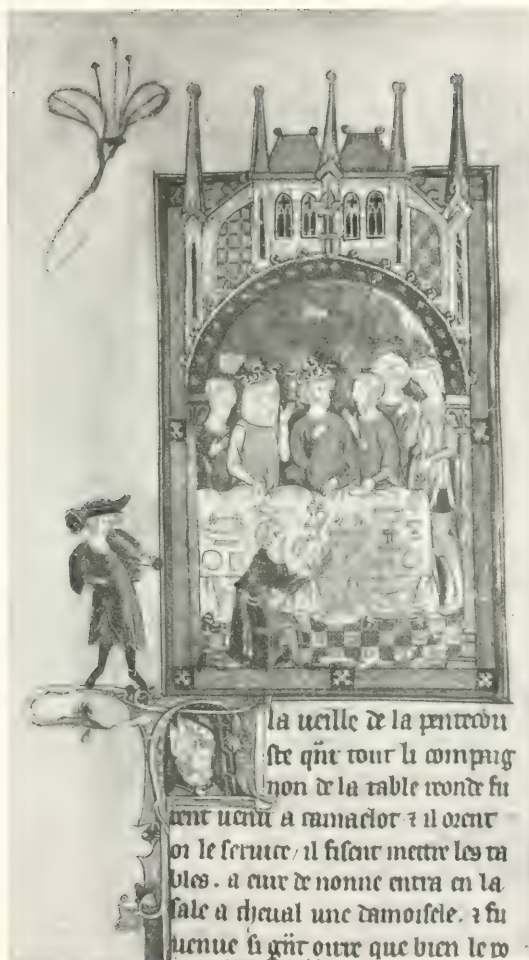 la ueille de la pentecou
ste qñt tout li compaig
non de la table reonde fu
rent uenu a camaelot ⁊ il orent
oi le seruice / il fisent mettre les ta
bles . a eure de nonne entra en la
sale a cheual une damoisele . ⁊ fu
uenue si gñt oirre que bien le